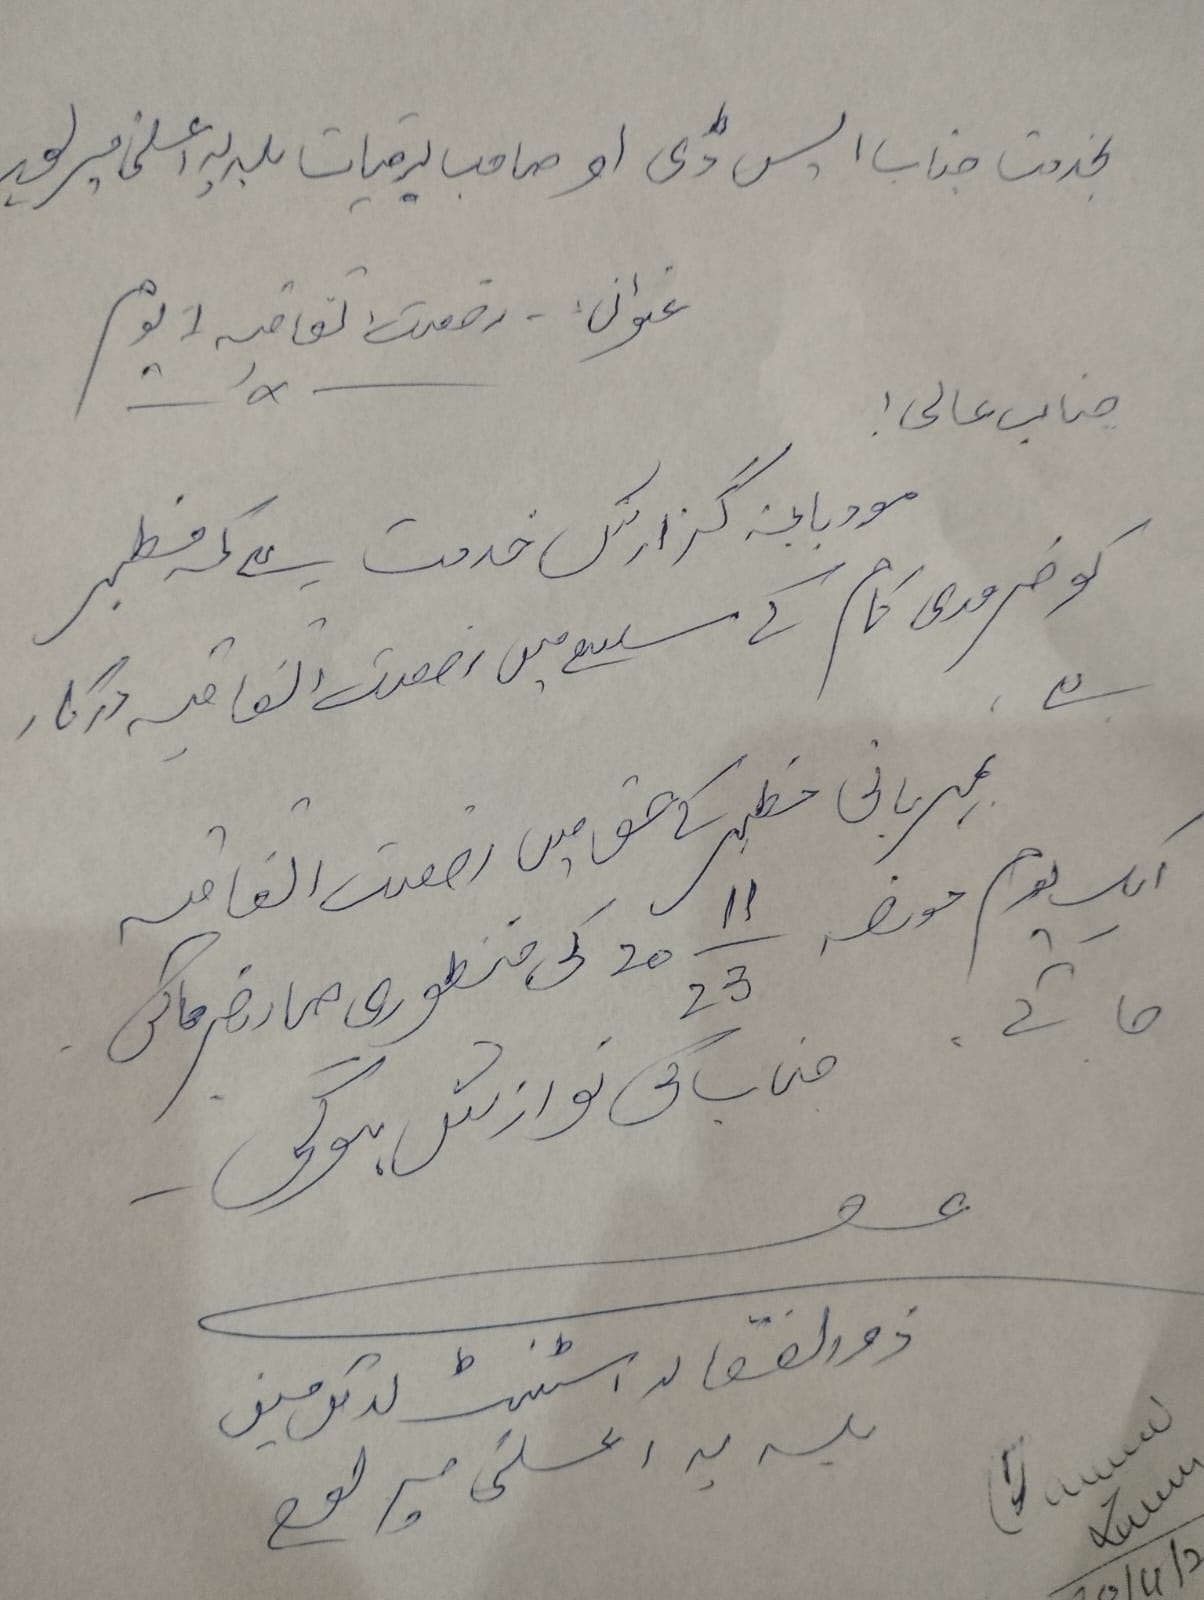 بخدمت جناب ایس ڈی او صاحب ترقیات بلدیہ اعلیٰ میرپور
عنوان:- رخصت اتفاقیہ 1 یوم
جناب عالی!
مودبانہ گزارش خدمت ہے کہ مظہر
کو ضروری کام کے سلسلے میں رخصت اتفاقیہ درکار
ہے،
بمہربانی مظہر کے حق میں رخصت اتفاقیہ
ایک یوم مورخہ 20 11/23 کی منظوری صادر فرمائی
جائے۔
جناب کی نوازش ہوگی۔
ذوالفقار اسسٹنٹ لائن مین
بلدیہ اعلیٰ میرپور